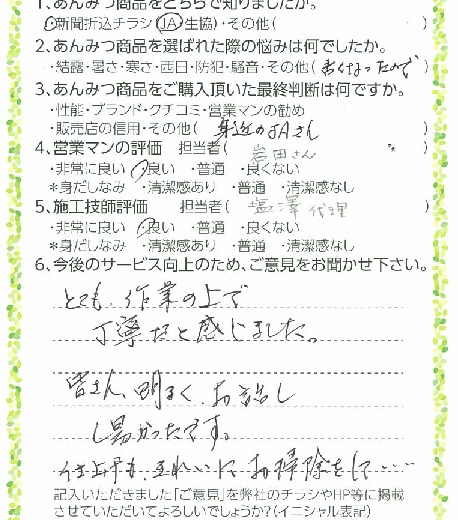 1、あんみつ商品をどちらで知りましたか。
・新聞折込チラシ(JA)生協)・その他( )
2、あんみつ商品を選ばれた際の悩みは何でしたか。
・結露・暑さ・寒さ・西日・防犯・騒音・その他(古くなったので)
3、あんみつ商品をご購入頂いた最終判断は何ですか。
・性能・ブランド・クチコミ・営業マンの勧め
・販売店の信用・その他( 身近のJAさん )
4、営業マンの評価 担当者( 岩田さん )
・非常に良い ・良い ・普通 ・良くない
*身だしなみ ・清潔感あり ・普通 ・清潔感なし
5、施工技師評価 担当者( 塩澤代理 )
・非常に良い ・良い ・普通 ・良くない
*身だしなみ ・清潔感あり ・普通 ・清潔感なし
6、今後のサービス向上のため、ご意見をお聞かせ下さい。
とても、作業の上で
丁寧だと感じました。
皆さん、明るく、お話し
し易かったです。
仕上げも、きれいに お掃除をして……
記入いただきました「ご意見」を弊社のチラシやHP等に掲載
させていただいてよろしいでしょうか?(イニシャル表記)